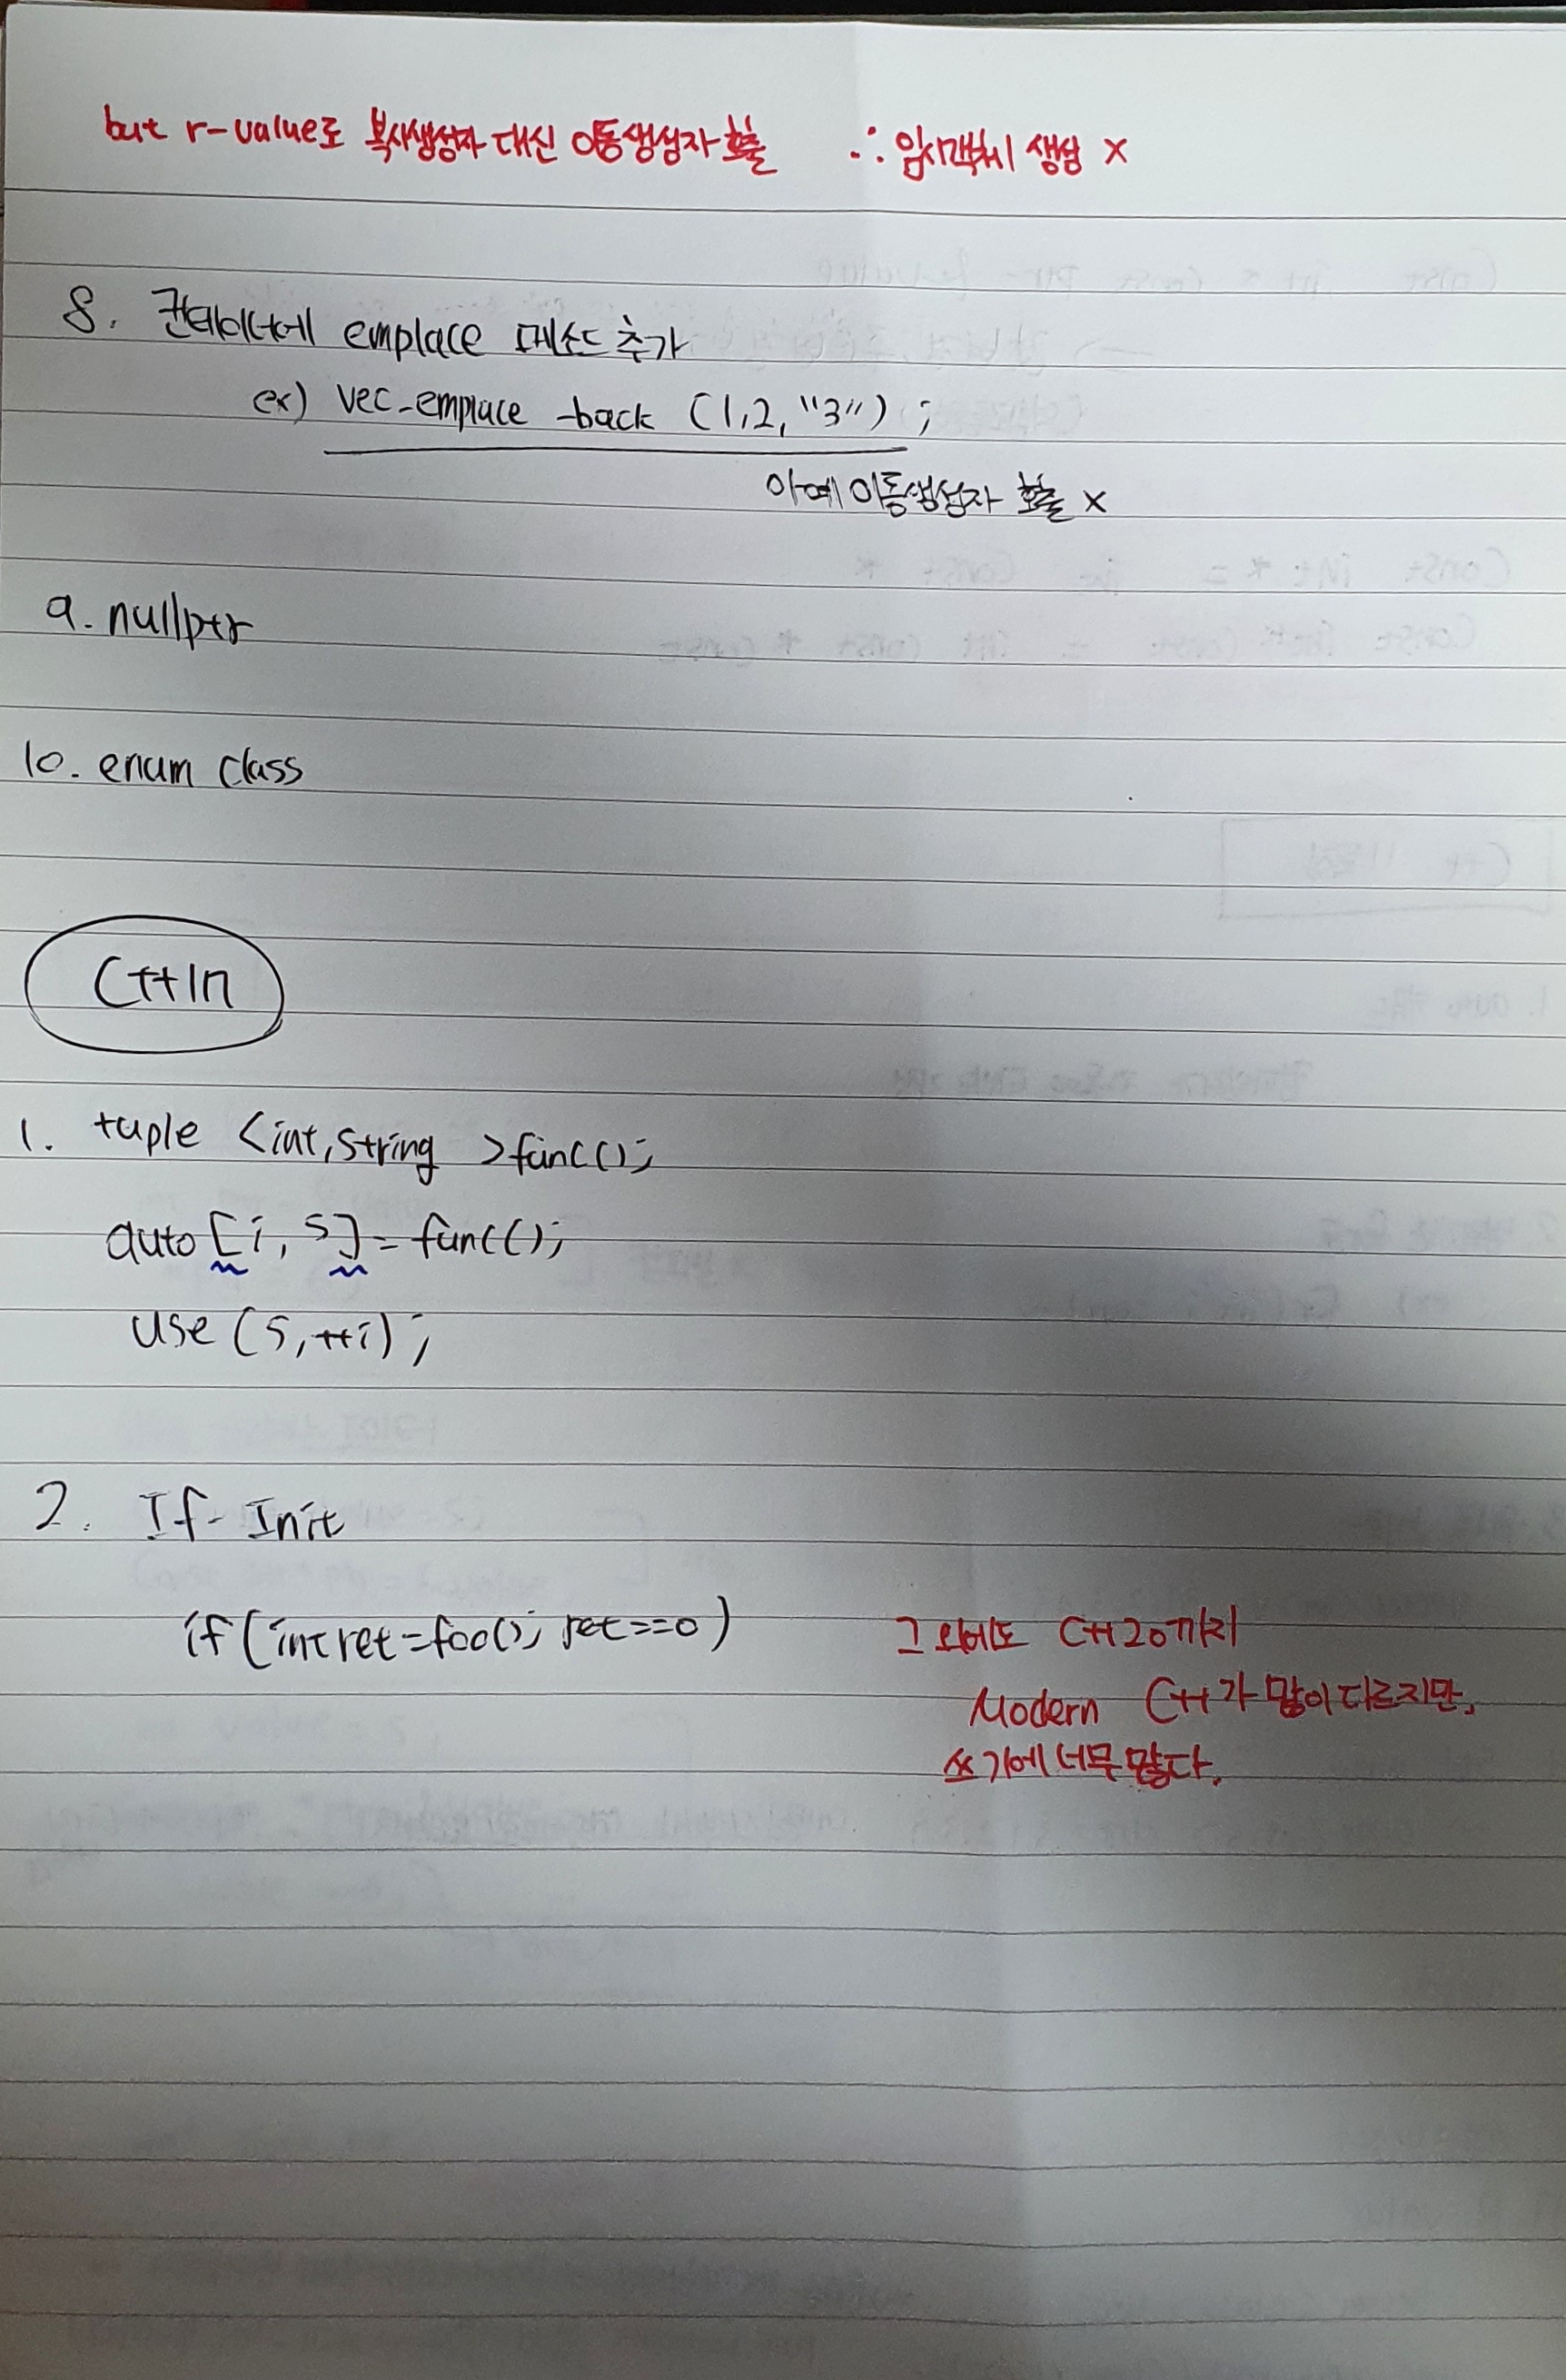 but r-value로 복사생성자 대신 이동생성자 호출 ∴ 임시객체 생성 X
8. 컨테이너에 emplace 메소드 추가
ex) vec-emplace -back (1,2,"3");
아예 이동생성자 호출 X
9. nullptr
10. enum class
C++17
1. tuple <int,string >func();
auto [i, s] = func();
use (s, ++i);
2. If- Init
if (int ret=foo(); ret==0)
그 외에도 C++20까지
Modern C++가 많이 다르지만,
쓰기에 너무 많다.